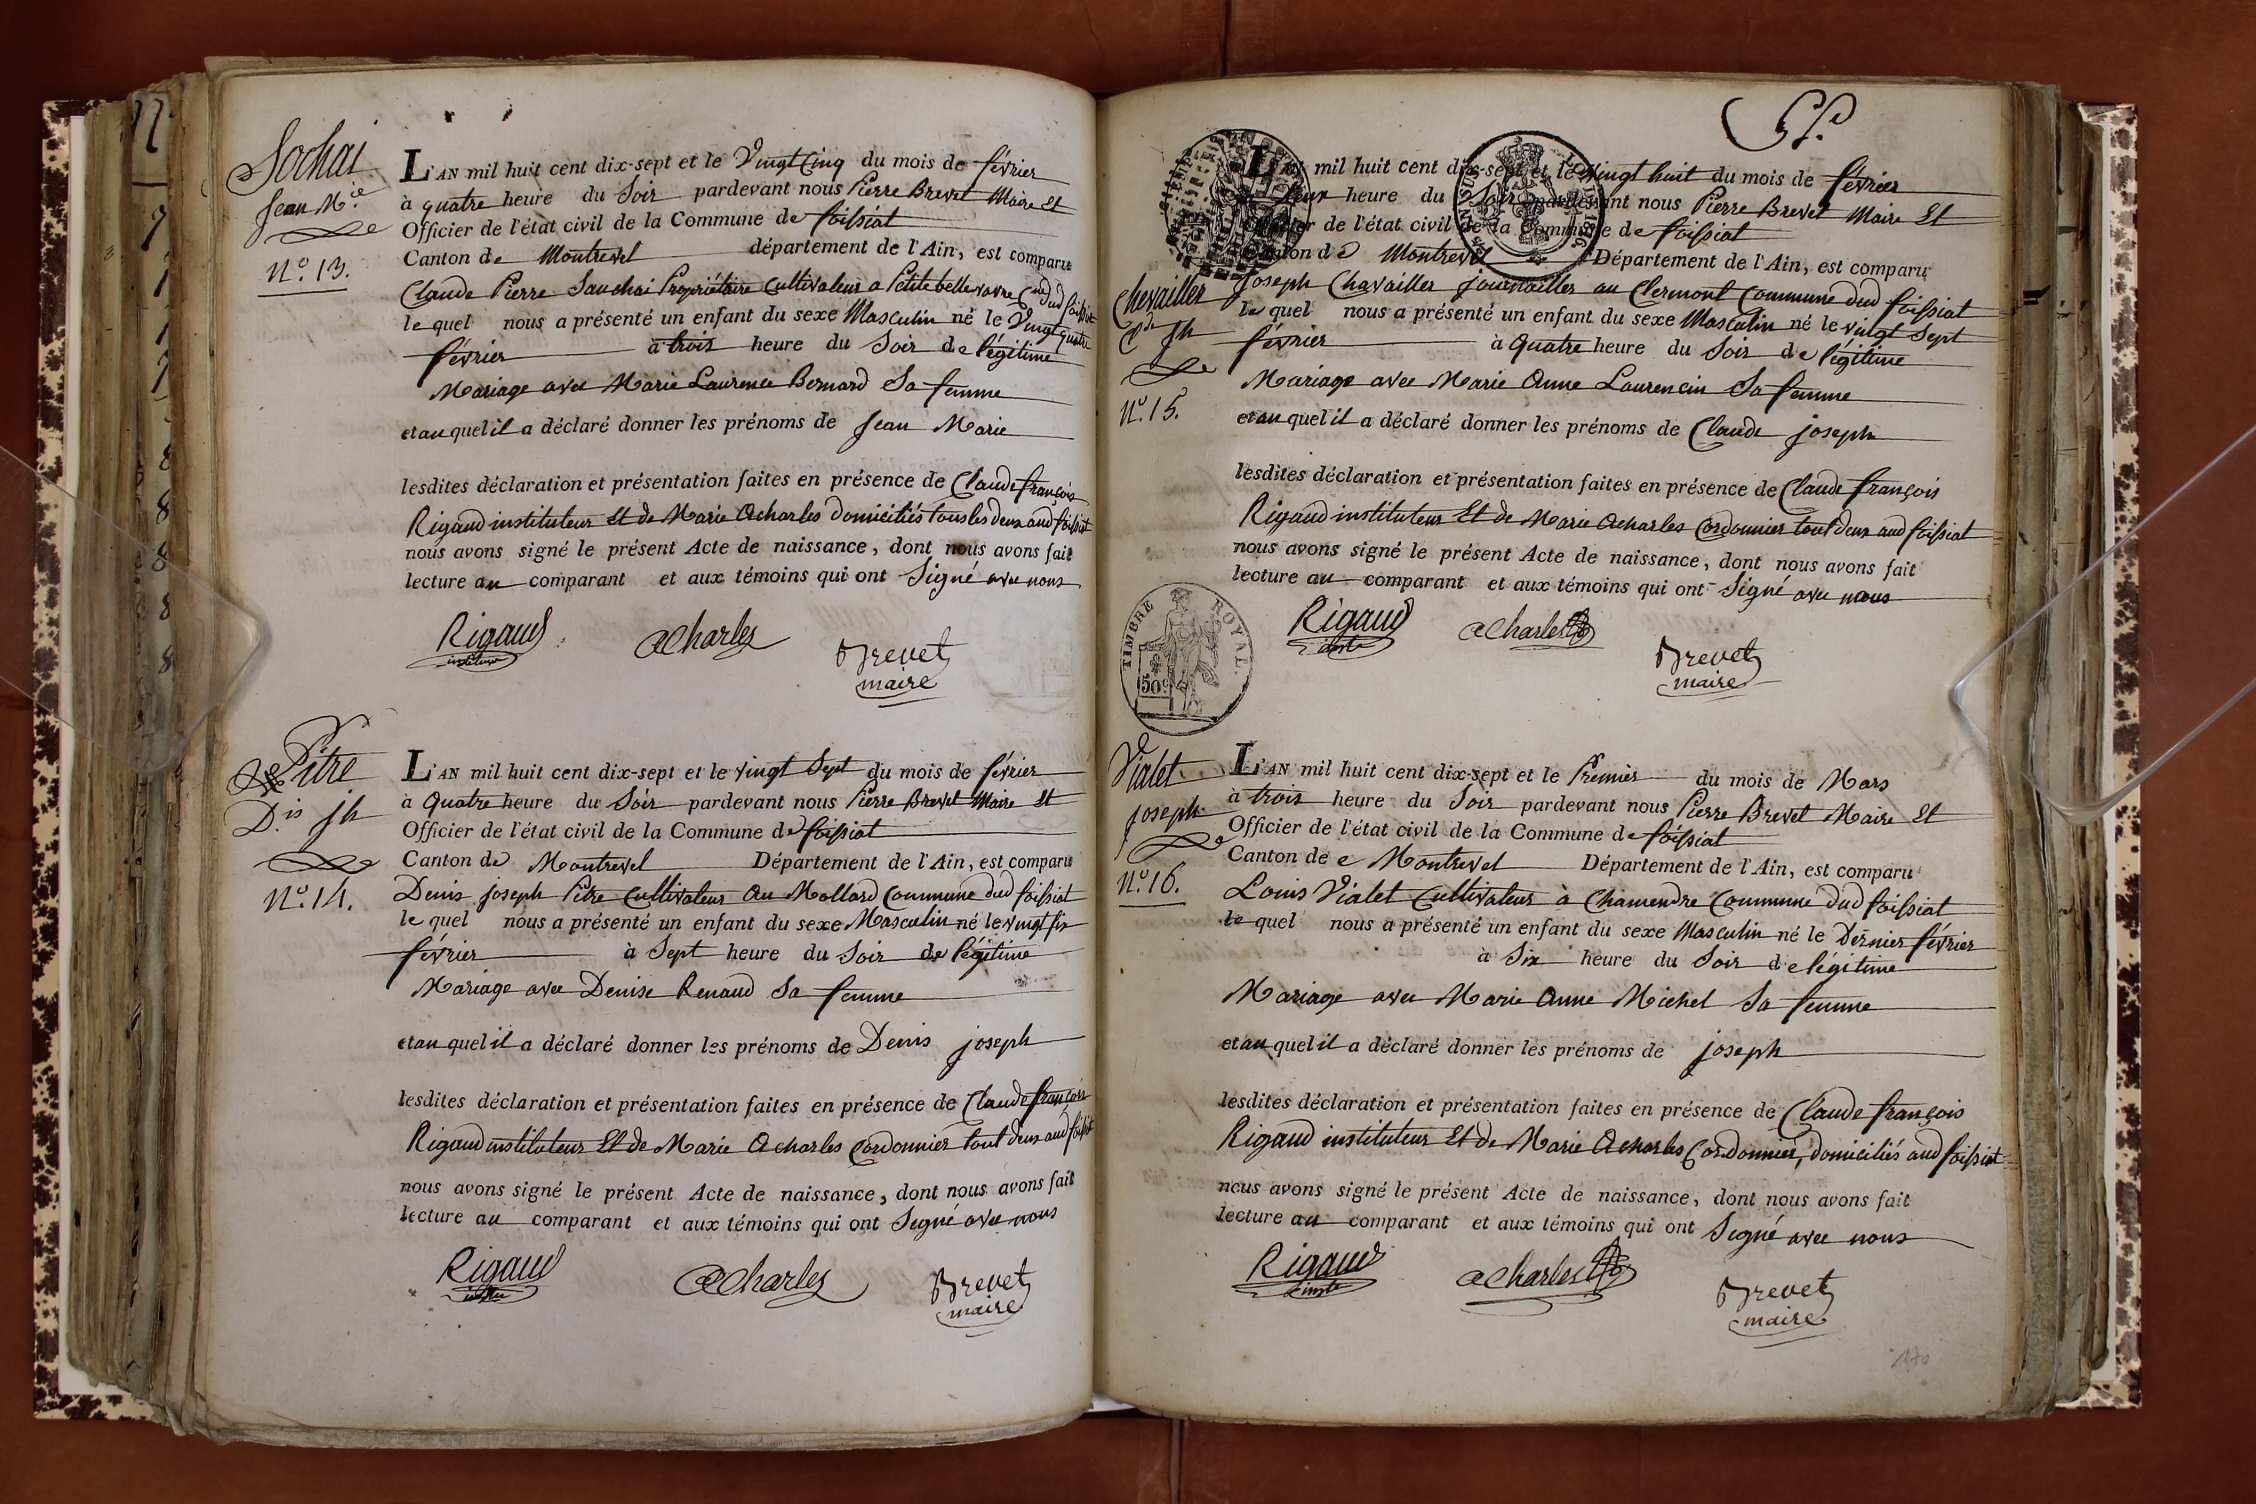 Sochai
Jean M.ie
N.o 13.
L'AN mil huit cent dix-sept et le Vingt Cinq du mois de février
à quatre heure du Soir pardevant nous Pierre Brevet Maire Et
Officier de l'état civil de la Commune de foissiat
Canton de Montrevel département de l'Ain, est comparu
Claude Pierre Sauchai Propriétaire Cultivateur a Petite bellevavre Cne dud foissiat
le quel nous a présenté un enfant du sexe Masculin né le Vingt quatre
février à trois heure du Soir de légitime
Mariage avec Marie Laurence Bernard Sa femme
et au quel il a déclaré donner les prénoms de Jean Marie
lesdites déclaration et présentation faites en présence de Claude françois
Rigaud instituteur Et de Marie Acharles Domiciliés tous les deux aud foissiat
nous avons signé le présent Acte de naissance, dont nous avons fait
lecture au comparant et aux témoins qui ont Signé avec nous
Rigaud
instituteur
aCharles
Brevet
maire
Pitre
D.is jh
N.o 14.
L'AN mil huit cent dix-sept et le vingt Sept du mois de février
à Quatre heure du Soir pardevant nous Pierre Brevet Maire Et
Officier de l'état civil de la Commune de foissiat
Canton de Montrevel Département de l'Ain, est comparu
Denis joseph Pitre Cultivateur Au Mollard Commune dud foissiat
le quel nous a présenté un enfant du sexe Masculin né le vingt six
février à Sept heure du Soir de légitime
Mariage avec Denise Renaud Sa femme
et au quel il a déclaré donner les prénoms de Denis joseph
lesdites déclaration et présentation faites en présence de Claude françois
Rigaud instituteur Et de Marie Acharles Cordonnier tout deux aud foissiat
nous avons signé le présent Acte de naissance, dont nous avons fait
lecture au comparant et aux témoins qui ont Signé avec nous
Rigaud
aCharles
Brevet
maire
L'AN mil huit cent dix-sept et le Vingt huit du mois de février
heure du Soir pardevant nous Pierre Brevet Maire Et
Officier de l'état civil de la Commune de foissiat
Canton de Montrevel Département de l'Ain, est comparu
Chevailler
C.de jh
N.o 15.
Joseph Chavailler journailler au Clermont Commune dud foissiat
le quel nous a présenté un enfant du sexe Masculin né le vingt Sept
février à Quatre heure du Soir de légitime
Mariage avec Marie Anne Laurencin Sa femme
et au quel il a déclaré donner les prénoms de Claude joseph
lesdites déclaration et présentation faites en présence de Claude françois
Rigaud instituteur Et de Marie Acharles Cordonnier tout deux aud foissiat
nous avons signé le présent Acte de naissance, dont nous avons fait
lecture au comparant et aux témoins qui ont Signé avec nous
TIMBRE ROYAL
50c
Rigaud
aCharles
Brevet
maire
Vialet
joseph
N.o 16.
L'AN mil huit cent dix-sept et le Premier du mois de Mars
à trois heure du Soir pardevant nous Pierre Brevet Maire Et
Officier de l'état civil de la Commune de foissiat
Canton de e Montrevel Département de l'Ain, est comparu
Louis Vialet Cultivateur à Chamendre Commune dud foissiat
le quel nous a présenté un enfant du sexe Masculin né le Dernier février
à Six heure du Soir de légitime
Mariage avec Marie Anne Michel Sa femme
et au quel il a déclaré donner les prénoms de joseph
lesdites déclaration et présentation faites en présence de Claude françois
Rigaud instituteur Et de Marie Acharles Cordonnier, domiciliés aud foissiat
nous avons signé le présent Acte de naissance, dont nous avons fait
lecture au comparant et aux témoins qui ont Signé avec nous
Rigaud
aCharles
Brevet
maire